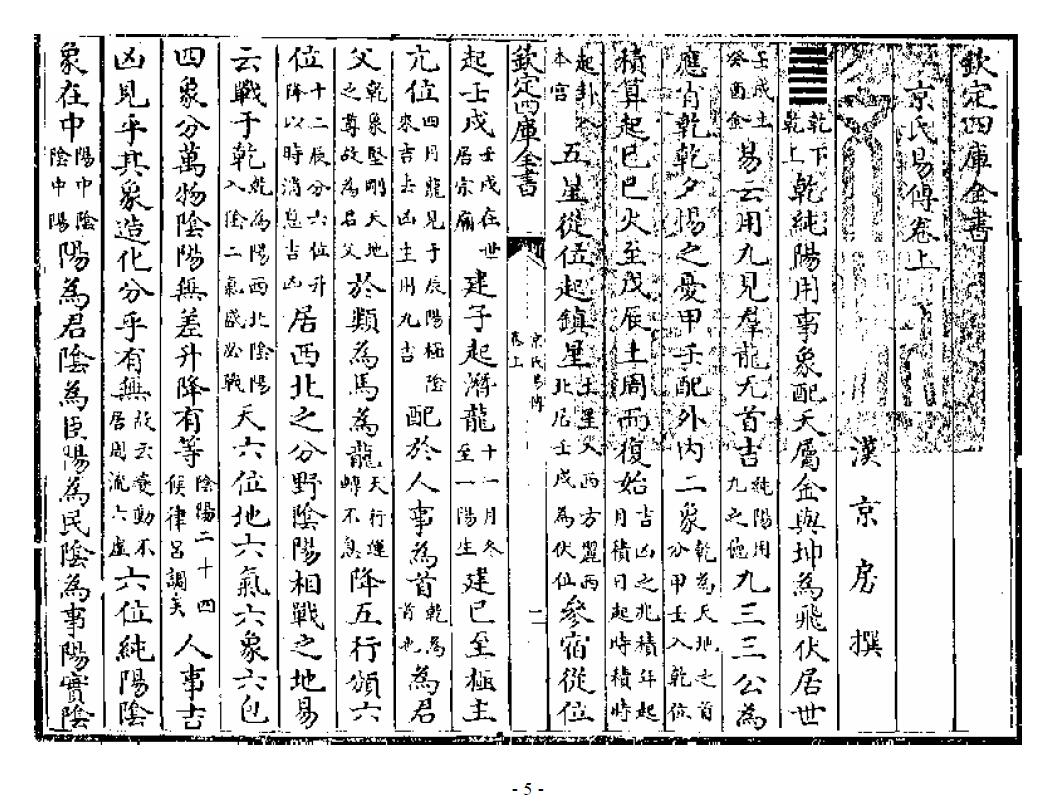 欽定四庫全書
京氏易傳卷上
漢京房撰
乾下乾上乾純陽用事象配天屬金與坤為飛伏居世
壬戌土癸酉金易云用九見羣龍无首吉純陽用九之德九三三公為
應肖乾乾夕惕之憂甲壬配外内二象乾為天地之首分甲壬入乾位
積算起己巳火至戊辰土周而復始吉凶之兆積年起月積日起時積時
起卦入本宮五星從位起鎮星土星入西方麗西北居壬戌為伏位參宿從位
欽定四庫全書
京氏易傳卷上
二
起壬戌壬戌在世居宗廟建子起潛龍十一月冬至一陽生建巳至極主
亢位四月龍見于辰陽極陰來吉去凶生用九吉配於人事為首乾為首也為君
父乾象堅剛天地之尊故為君父於類為馬為龍天行運轉不息降五行頒六
位十二辰分六位升降以時消息吉凶居西北之分野陰陽相戰之地易
云戰于乾乾為陽西北陰陽入陰二氣盛必戰天六位地六氣六象六包
四象分萬物陰陽無差升降有等陰陽二十四候律吕調矣人事吉
凶見乎其象造化分乎有無故云變動不居周流六虛六位純陽陰
象在中陽中陰陰中陽陽為君陰為臣陽為民陰為事陽實陰
- 5 -